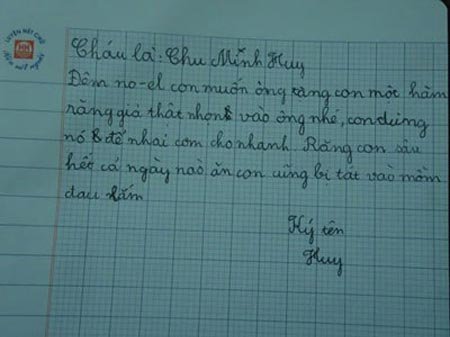 LUYỆN NÉT CHỮ
Rèn nết người
Cháu là: Chu Minh Huy
Đêm no-el con muốn ông tặng con một hàm
răng giả thật nhọn vào ông nhé, con dùng
nó để nhai cơm cho nhanh. Răng con sâu
hết cả ngày nào ăn con cũng bị tát vào mồm
đau lắm
Ký tên
Huy